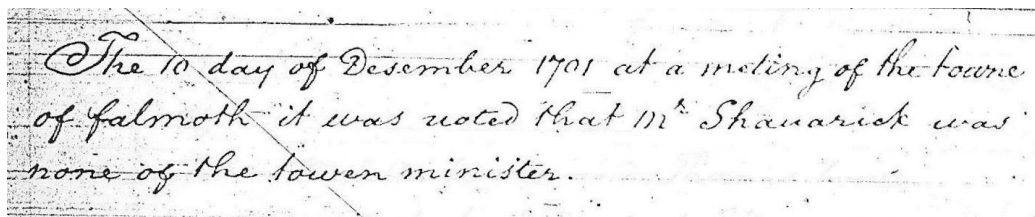 The 10 day of Desember 1701 at a meting of the towne
of falmoth it was uoted that mr Shauarick was
none of the towen minister.